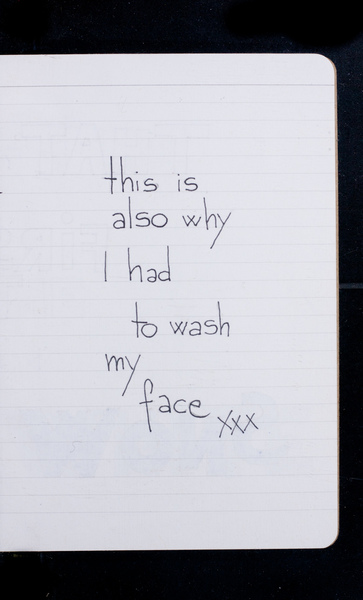 this is
also why
I had
to wash
my
face xxx